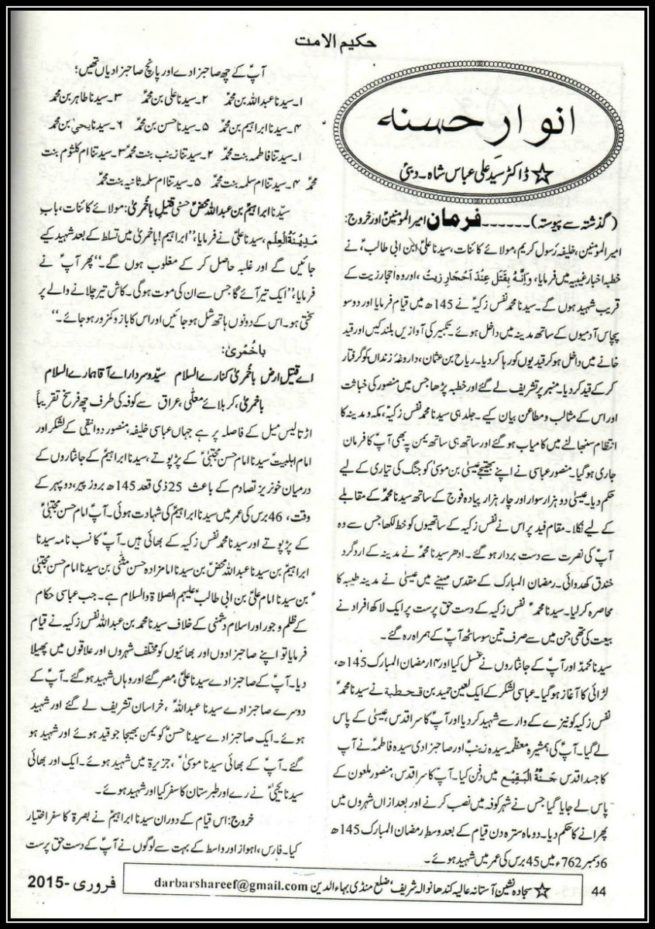 حکیم الامت
انوارِ حسنہ
☆ ڈاکٹر سید علی عباس شاہ۔دبئ
(گذشتہ سے پیوستہ)۔۔۔۔۔۔فرمان امیر المومنین اور خروج:
امیر المومنین، خلیفہ رسول کریم، مولائے کائنات، سیدنا علی ابن ابی طالبؑ نے
خطبہ اخبار غیبیہ میں فرمایا، وَاِنَّہُ یقتل عِندَ اَحجارِ زیتُ، اور وہ احجار زیت کے
قریب شہید ہوں گے۔ سیدنا محمد نفس زکیہؑ نے 145ھ میں قیام فرمایا اور دو سو
پچاس آدمیوں کے ساتھ مدینہ میں داخل ہوئے۔ تکبیر کی آوازیں بلند کیں اور قید
خانے میں داخل ہو کر قیدیوں کو رہا کر دیا۔ رباح بن عثمان، داروغہ زنداں کو گرفتار
کر کے قید کر دیا۔ منبر پر تشریف لے گئے اور خطبہ پڑھا جس میں منصور کی خباثت
اور اس کے مثالب و مطاعن بیان کیے۔ جلد ہی سیدنا محمد نفس زکیہؑ، مکہ و مدینہ کا
انتظام سنبھالنے میں کامیاب ہو گئے اور ساتھ ہی ساتھ یمن پہ بھی آپؑ کا فرمان
جاری ہو گیا۔ منصور عباسی نے اپنے بھتیجے عیسیٰ بن موسیٰ کو جنگ کی تیاری کے لیے
حکم دیا۔ عیسیٰ دو ہزار سوار اور چار ہزار پیادہ فوج کے ساتھ سیدنا محمدؑ کے مقابلے
کے لیے نکلا۔ مقام فید پر اس نے نفس زکیہ کے ساتھیوں کو خط لکھا جس سے وہ
آپؑ کی نصرت سے دست بردار ہو گئے۔ ادھر سیدنا محمدؑ نے مدینہ کے ارد گرد
خندق کھدوائی۔ رمضان المبارک کے مقدس مہینے میں عیسیٰ نے مدینہ طیبہ کا
محاصرہ کر لیا۔ سیدنا محمدؑ نفس زکیہ کے دست حق پرست پر ایک لاکھ افراد نے
بیعت کی تھی جن میں سے صرف تین سو ساٹھ آپؑ کے ہمراہ رہ گئے۔
سیدنا محمدؑ اور آپؑ کے جانثاروں نے غسل کیا اور ۱۴رمضان المبارک 145ھ،
لڑائی کا آغاز ہو گیا۔ عباسی لشکر کے ایک لعین حمید بن قحطبة نے سیدنا محمدؑ
نفس زکیہ کو نیزے کے وار سے شہید کر دیا اور آپؑ کا سر اقدس، عیسیٰ کے پاس
لے گیا۔ آپؑ کی ہمشیرہ معظمہ سیدہ زینبؑ اور صاحبزادی سیدہ فاطمہؑ نے آپؑ
کا جسد اقدس جَنَّةُ الْبَقِیْع میں دفن کیا۔ آپؑ کا سر اقدس، منصور ملعون کے
پاس لے جایا گیا جس نے شہر کوفہ میں نصب کرنے اور بعد ازاں شہروں میں
پھرانے کا حکم دیا۔ دو ماہ سترہ دن قیام کے بعد وسط رمضان المبارک 145ھ
6دسمبر 762ء میں 45 برس کی عمر میں شہید ہوئے۔
آپؑ کے چھ صاحبزادے اور پانچ صاحبزادیاں تھیں؛
۱۔سیدنا عبداللہ بن محمدؑ ۲۔سیدنا علی بن محمدؑ ۳۔سیدنا طاہر بن محمدؑ
۴۔سیدنا ابراہیم بن محمدؑ ۵۔سیدنا حسن بن محمدؑ ۶۔سیدنا یحییٰ بن محمدؑ
۱۔سیدتنا فاطمہ بنت محمدؑ ۲۔سیدتنا زینب بنت محمدؑ ۳۔سیدتنا ام کلثوم بنت
محمدؑ ۴۔سیدتنا ام سلمہ بنت محمدؑ ۵۔سیدتنا ام سلمہ ثانیہ بنت محمدؑ
سیدنا ابراہیم بن عبداللہ المحضؑ حسنی قتیل باخمریٰ: مولائے کائنات، بابِ
مَدِینَةُ العِلم، سیدنا علیؑ نے فرمایا، ''ابراہیم! باخمریٰ میں تسلط کے بعد شہید کیے
جائیں گے اور غلبہ حاصل کر کے مغلوب ہوں گے۔'' پھر آپؑ نے
فرمایا، ''ایک تیر آئے گا جس سے ان کی موت ہو گی۔ کاش تیر چلانے والے پر
سختی ہو۔ اس کے دونوں ہاتھ شل ہو جائیں اور اس کا بازو کمزور ہو جائے۔''
باخُمریٰ:
اے قتیلِ ارضِ باخمریٰ کنارے السلام سیّد و سردار اے آقا ہمارے السلام
باخمریٰ، کربلائے معلیٰ، عراق سے کوفہ کی طرف چھ فرسخ تقریباً
اڑتالیس میل کے فاصلہ پر ہے جہاں عباسی خلیفہ، منصور دوانقی کے لشکر اور
امام اہلبیت سیدنا امام حسن مجتبیٰؑ کے پڑپوتے، سیدنا ابراہیمؑ کے جانثاروں کے
درمیان خونریز تصادم کے باعث 25ذی قعد 145ھ بروز پیر، دوپہر کے
وقت، 46برس کی عمر میں سیدنا ابراہیمؑ کی شہادت ہوئی۔ آپؑ امام حسن مجتبیٰؑ
کے پڑپوتے اور سیدنا محمد نفس زکیہ کے بھائی ہیں۔ آپؑ کا نسب نامہ سیدنا
ابراہیم بن سیدنا عبداللہ محض بن سیدنا امام زادہ حسن مثنیٰ بن سیدنا امام حسن مجتبیٰ
بن سیدنا امام علی بن ابی طالب علیہم الصلاة والسلام ہے۔ جب عباسی حکام
کے ظلم و جور اور اسلام دشمنی کے خلاف سیدنا محمد بن عبداللہ نفس زکیہ نے قیام
فرمایا تو اپنے صاحبزادوں اور بھائیوں کو مختلف شہروں اور علاقوں میں پھیلا
دیا۔ آپؑ کے صاحبزادے سیدنا علیؑ، مصر گئے اور وہاں شہید ہو گئے۔ آپؑ کے
دوسرے صاحبزادے سیدنا عبداللہؑ، خراسان تشریف لے گئے اور شہید
ہوئے۔ ایک صاحبزادے سیدنا حسنؑ کو یمن بھیجا جو قید ہوئے اور شہید ہو
گئے۔ آپؑ کے بھائی سیدنا موسیٰؑ، جزیرہ میں شہید ہوئے۔ ایک اور بھائی
سیدنا یحییٰؑ نے رے اور طبرستان کا سفر کیا اور شہید ہوئے۔
خروج: اس قیام کے دوران سیدنا ابراہیمؑ نے بصرة کا سفر اختیار
کیا۔ فارس، اھواز اور واسط کے بہت سے لوگوں نے آپؑ کے دست حق پرست
44 ☆ سجادہ نشین آستانہ عالیہ کندھانوالہ شریف، ضلع منڈی بہاءالدین darbarshareef@gmail.com فروری -2015